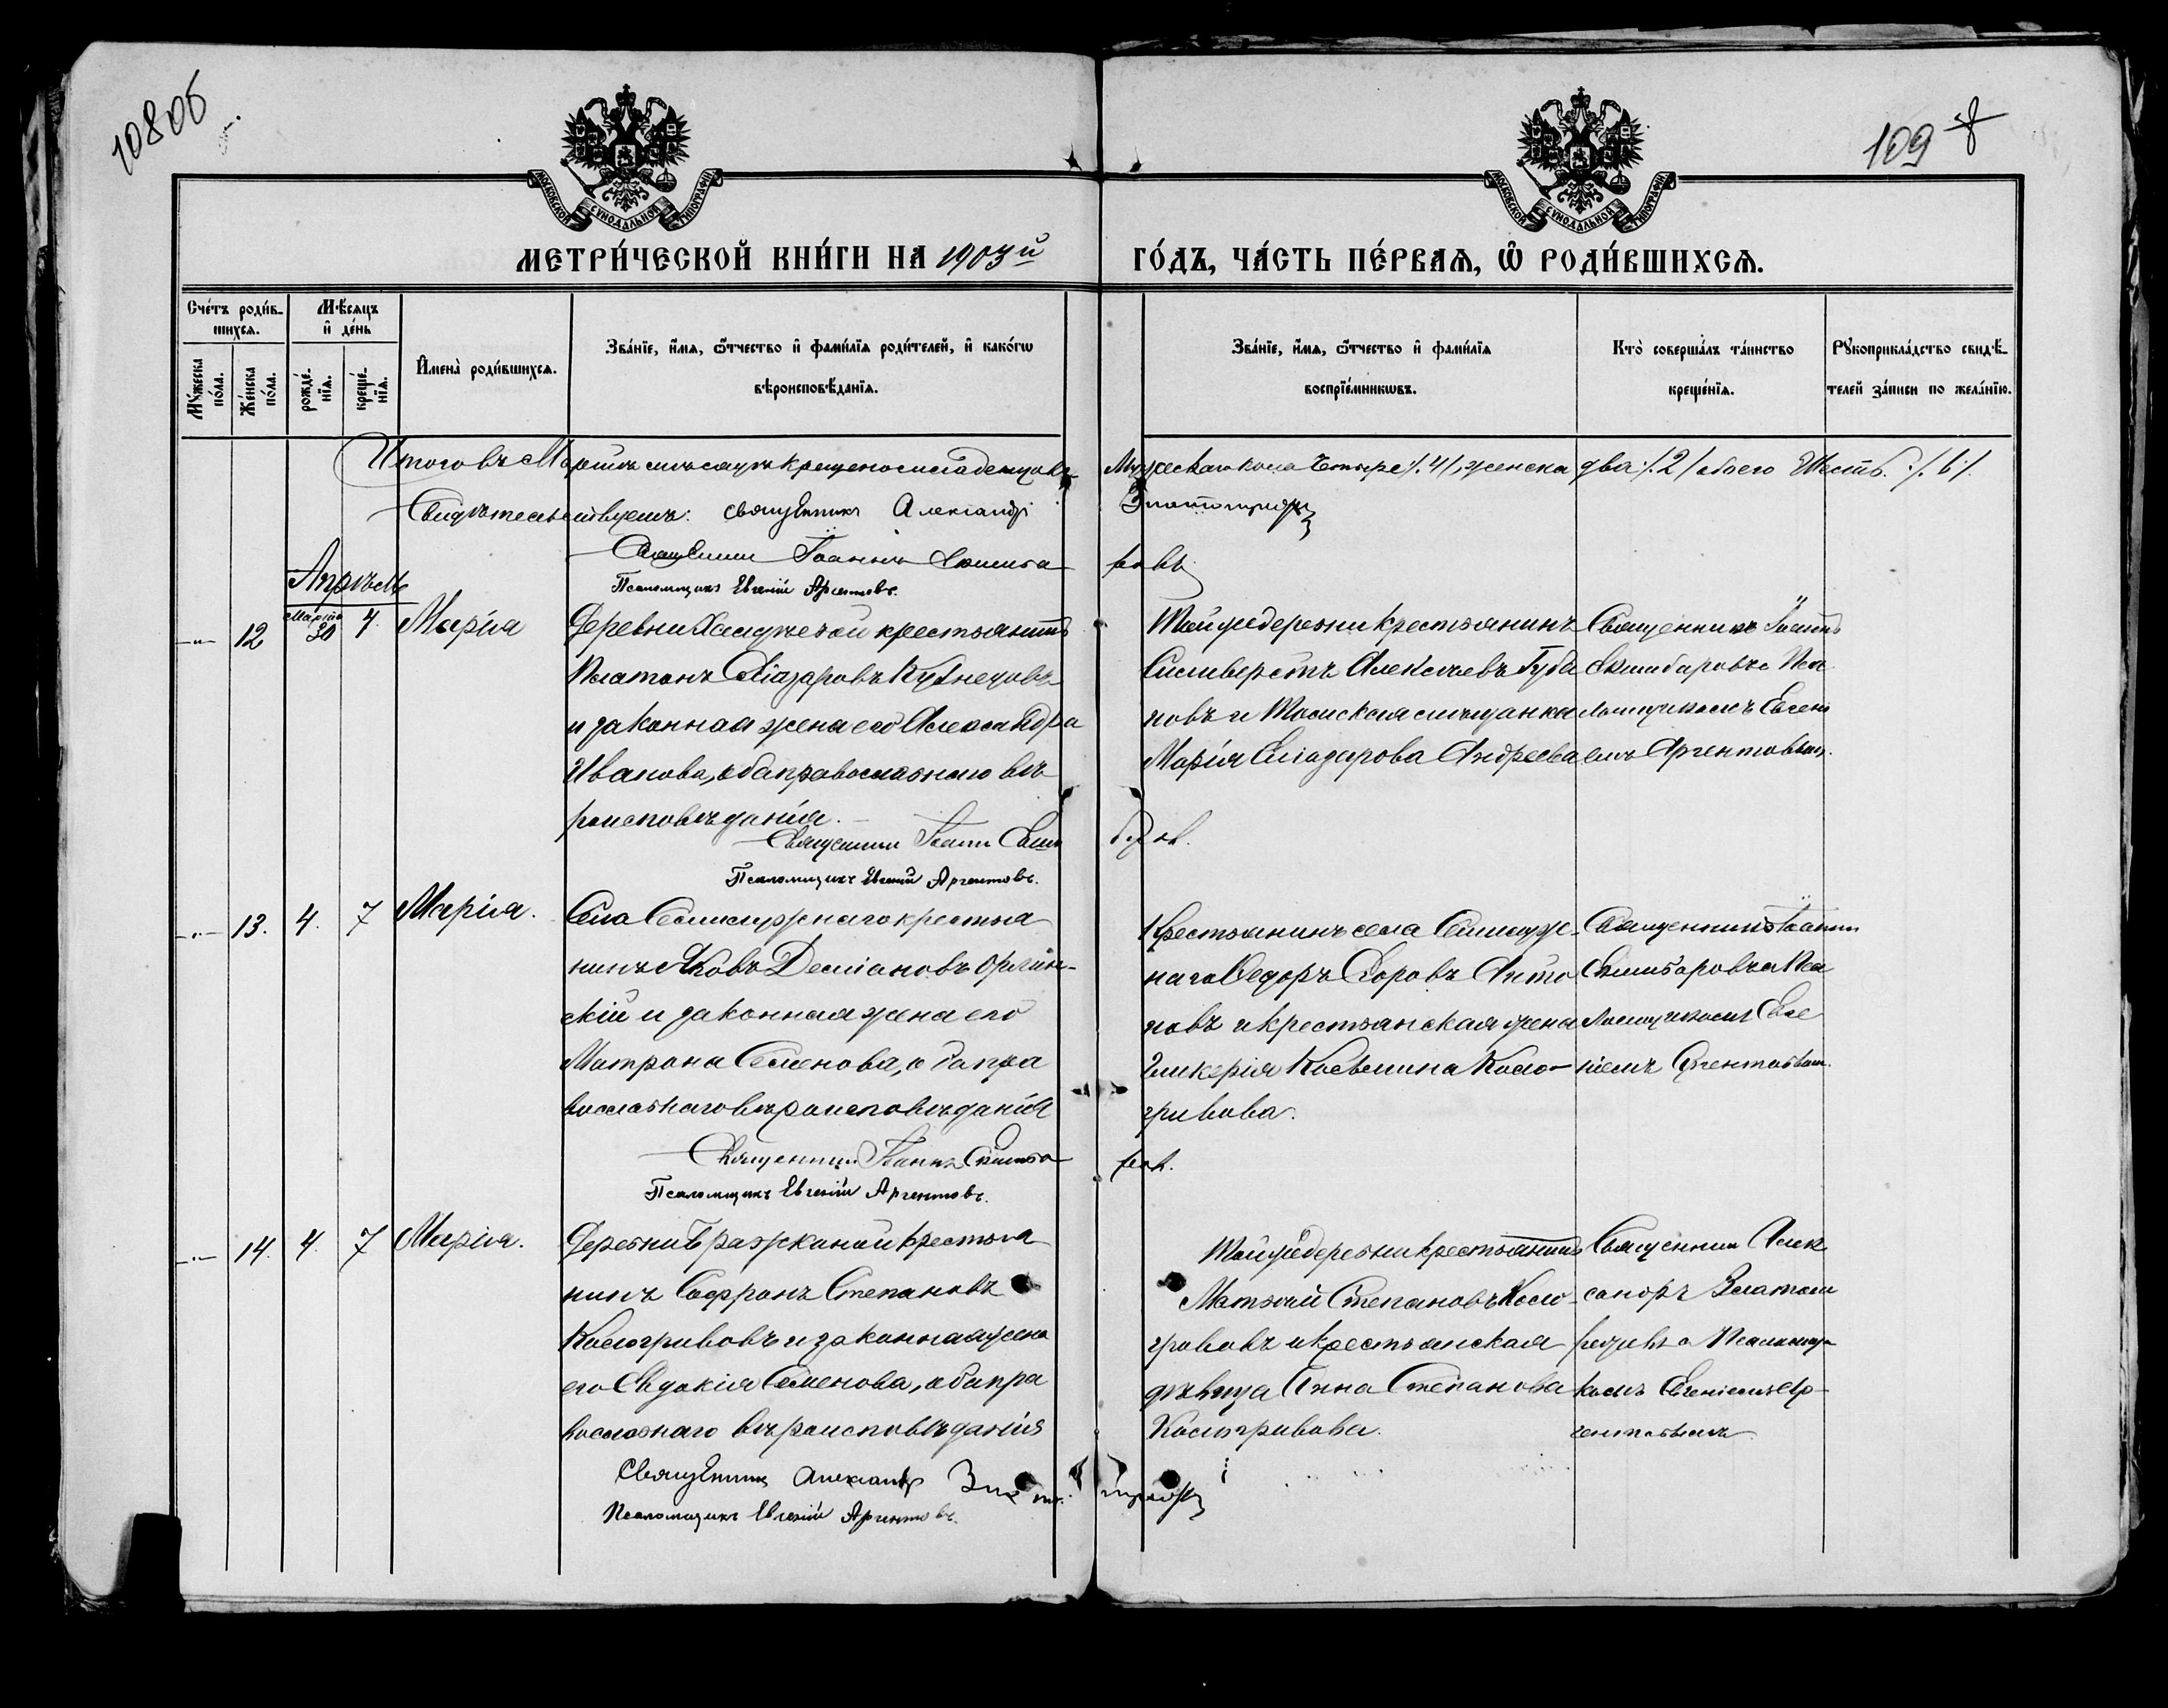 108об
109
МОСКОВСКОЙ СУНОДАЛЬНОЙ ТИПОГРАФІИ
МОСКОВСКОЙ СУНОДАЛЬНОЙ ТИПОГРАФІИ
МЕТРИ́ЧЕСКОЙ КНИ́ГИ НА 1903й ГО́ДЪ, ЧА́СТЬ ПЕ́РВАѦ, Ѡ РОДИ́ВШИХСѦ.
Сче́тъ роди́в-
шихсѧ.
Мѣ́сѧцъ
и҆ де́нь
Мꙋ́жеска по́ла.
Же́нска по́ла.
рожде́-нїѧ.
креще́-нїѧ.
И҆мена̀ роди́вшихсѧ.
Зва́нїе, и҆́мѧ, ѻ҆́тчество и҆ фами́лїѧ роди́телей, и҆ како́гѡ
вѣроисповѣ́данїѧ.
Зва́нїе, и҆́мѧ, ѻ҆́тчество и҆ фами́лїѧ
воспрїе́мникѡвъ.
Кто̀ соверша́лъ та́инство
креще́нїѧ.
Рꙋкоприкла́дство свидѣ́-
телей за́писи по жела́нїю.
Итого въ Мартѣ мѣсяцѣ крещено младенцовъ Мужескаго пола Четыре /.4/, женска два /.2/ обоего Шесть ./.6/.
Свидѣтельствуемъ: Священникъ Александръ
Священникъ Іоаннъ Скимба ровъ
Псаломщикъ Евгеній Аргентовъ.
Апрѣль
12 Марта 30 7 Марія
Деревни крестьянинъ
Платонъ Назаровъ Кузнецовъ
и законная жена его Александра
Иванова, оба православнаго вѣ
роисповѣданія.
Священникъ Іоаннъ Ским баров.
Псаломщикъ Евгеній Аргентовъ.
Той же деревни крестьянинъ
Силиверстъ Алексѣевъ Губа
новъ и Томская мѣщанка
Марія Елизарова Андреева
Священникъ Іоаннъ
Скимбаровъ съ Пса
ломщикомъ Евгені
емъ Аргентовым.
13. 4. 7 Марія.
Села Семилужнаго крестья
нинъ Яковъ Деміановъ Орлин-
скій и законная жена его
Матрона Семенова, оба пра
вославнаго вѣроисповѣданія
Священникъ Іоаннъ Скимба ров.
Псаломщикъ Евгеній Аргентовъ.
Крестьянинъ села Семилуж-
наго Ѳедоръ Анто
новъ и крестьянская жена
Гликерія Косо-
гривова.
Священникъ Іоаннъ
Скимбаровъ съ Пса
ломщикомъ Евге
ніемъ Аргентовым.
14. 4. 7 Марія.
Деревни крестья
нинъ Софронъ Степановъ
Косогривовъ и законная жена
его Евдокія Семенова, оба пра
вославнаго вѣроисповѣданія
Священникъ Александръ
Псаломщикъ Евгеній Аргентовъ.
Той же деревни крестьянинъ
Матвѣй Степановъ Косо-
гривовъ и крестьянская
дѣвица Анна Степанова
Косогривова.
Священникъ Алек
сандръ
съ Псаломщи
комъ Евгеніемъ Ар-
гентовымъ